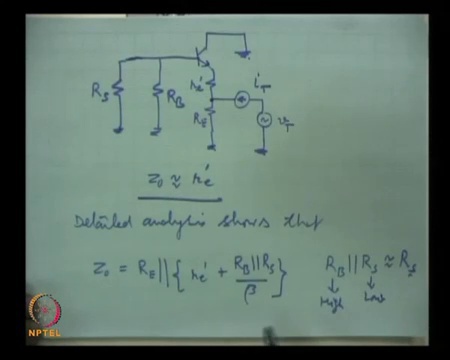 R_S
R_B
r_e'
i_T
R_E
v_T
Z_0 ≈ r_e'
Detailed analysis shows that
Z_0 = R_E || { r_e' + (R_B || R_S) / β }
R_B || R_S ≈ R_S
↓ ↓
High Low
NPTEL